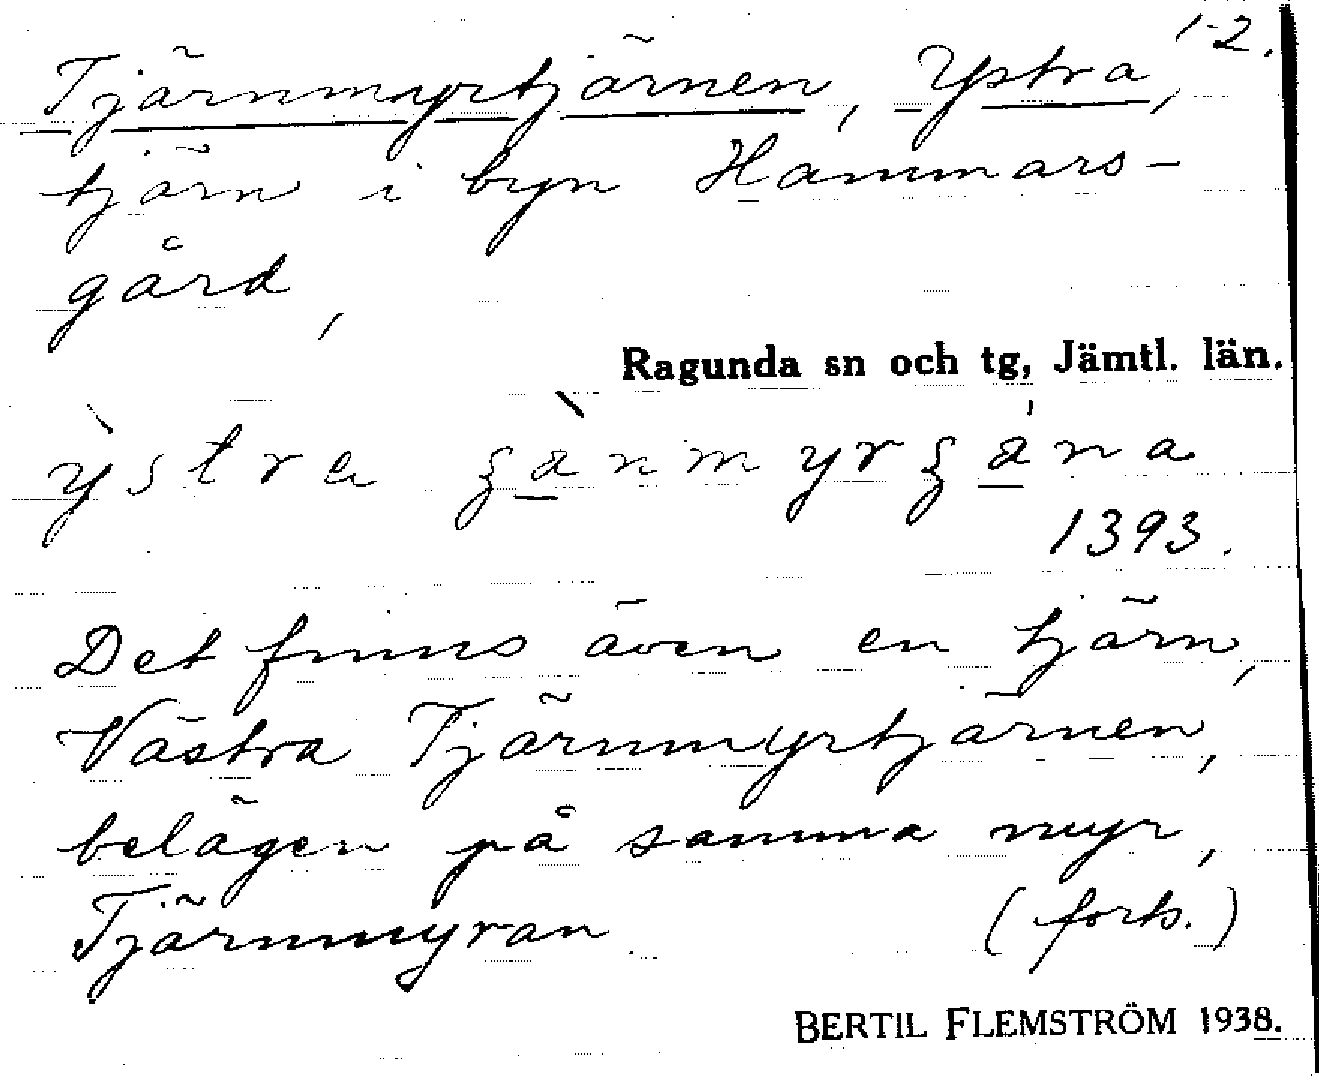 1-2.
Tjärnmyrtjärnen, Ystra,
tjärn i byn Hammars-
gård,
Ragunda sn och tg, Jämtl. län.
ỳstra
1393.
Det finns även en tjärn,
Västra Tjärnmyrtjärnen,
belägen på samma myr,
Tjärnmyran (forts.)
BERTIL FLEMSTRÖM 1938.